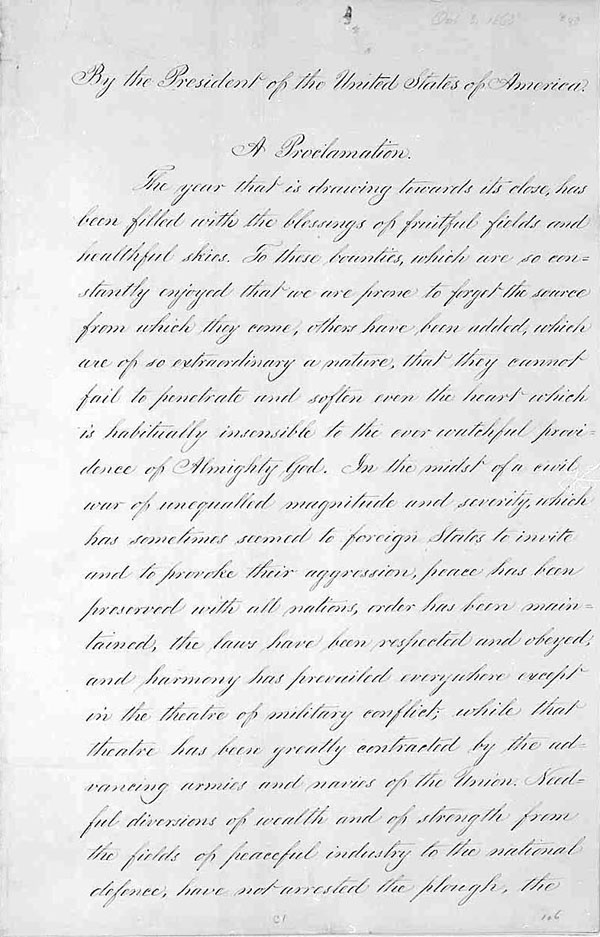 Oct 3, 1863
By the President of the United States of America.
A Proclamation.
The year that is drawing towards its close, has
been filled with the blessings of fruitful fields and
healthful skies. To these bounties, which are so con=
stantly enjoyed that we are prone to forget the source
from which they come, others have been added, which
are of so extraordinary a nature, that they cannot
fail to penetrate and soften even the heart which
is habitually insensible to the ever watchful provi=
dence of Almighty God. In the midst of a civil
war of unequalled magnitude and severity, which
has sometimes seemed to foreign States to invite
and to provoke their aggression, peace has been
preserved with all nations, order has been main=
tained, the laws have been respected and obeyed,
and harmony has prevailed everywhere except
in the theatre of military conflict; while that
theatre has been greatly contracted by the ad=
vancing armies and navies of the Union. Need=
ful diversions of wealth and of strength from
the fields of peaceful industry to the national
defence, have not arrested the plough, the